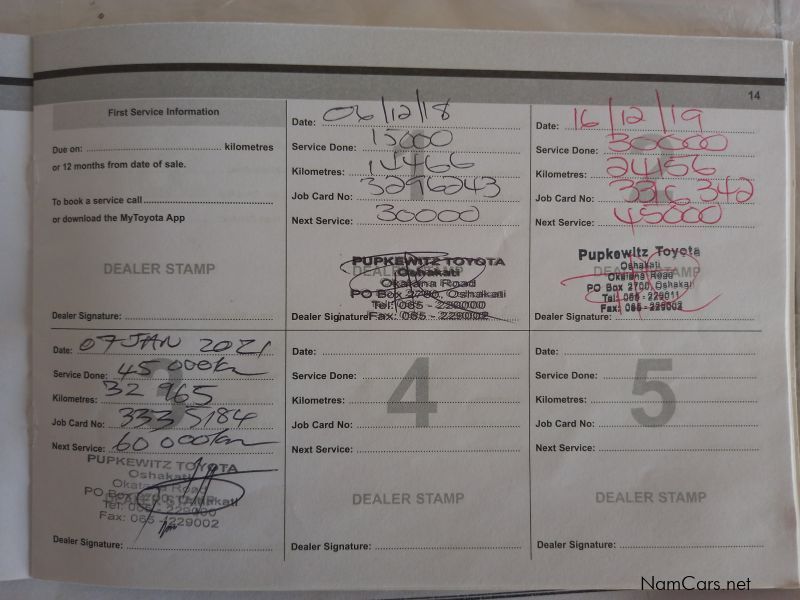 14
First Service Information
Due on: kilometres
or 12 months from date of sale.
To book a service call
or download the MyToyota App
DEALER STAMP
Dealer Signature:
Date: 06/12/18
Service Done: 15000
Kilometres: 14466
Job Card No: 3296243
Next Service: 30000
PUPKEWITZ TOYOTA
Oshakati
Okatana Road
PO Box 2700, Oshakati
Tel: 065 - 229000
Fax: 065 - 229002
Dealer Signature
Date: 16/12/19
Service Done: 30000
Kilometres: 24156
Job Card No: 3316342
Next Service: 45000
Pupkewitz Toyota
Oshakati
Okatana Road
PO Box 2700, Oshakati
Tel: 065 - 229011
Fax: 065 - 229002
Dealer Signature:
3
Date: 07 JAN 2021
Service Done: 45 000km
Kilometres: 32 965
Job Card No: 3335184
Next Service: 60 000km
PUPKEWITZ TOYOTA
Oshakati
Okatana Road
PO Box 2700, Oshakati
Tel: 065 - 229000
Fax: 065 - 229002
Dealer Signature:
4
Date:
Service Done:
Kilometres:
Job Card No:
Next Service:
DEALER STAMP
Dealer Signature:
5
Date:
Service Done:
Kilometres:
Job Card No:
Next Service:
DEALER STAMP
Dealer Signature:
NamCars.net